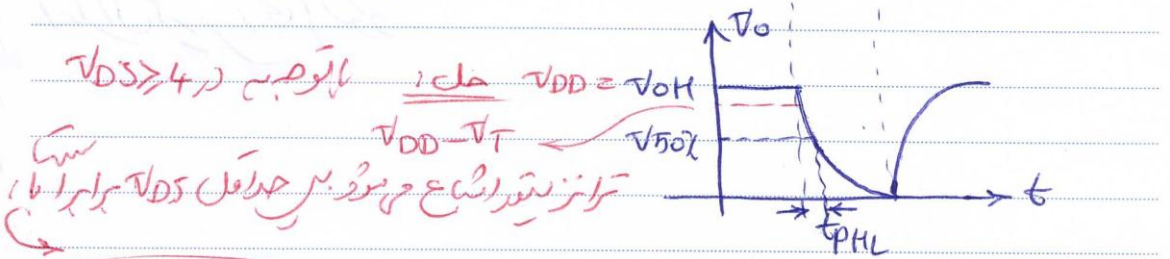 Vo
باتوجه به در VDS≥4 حل: VDD = VOH
VDD-VT
V50%
ترانزیتور اشباع می‌شود پس حداقل VDS برابر با
t
tPHL